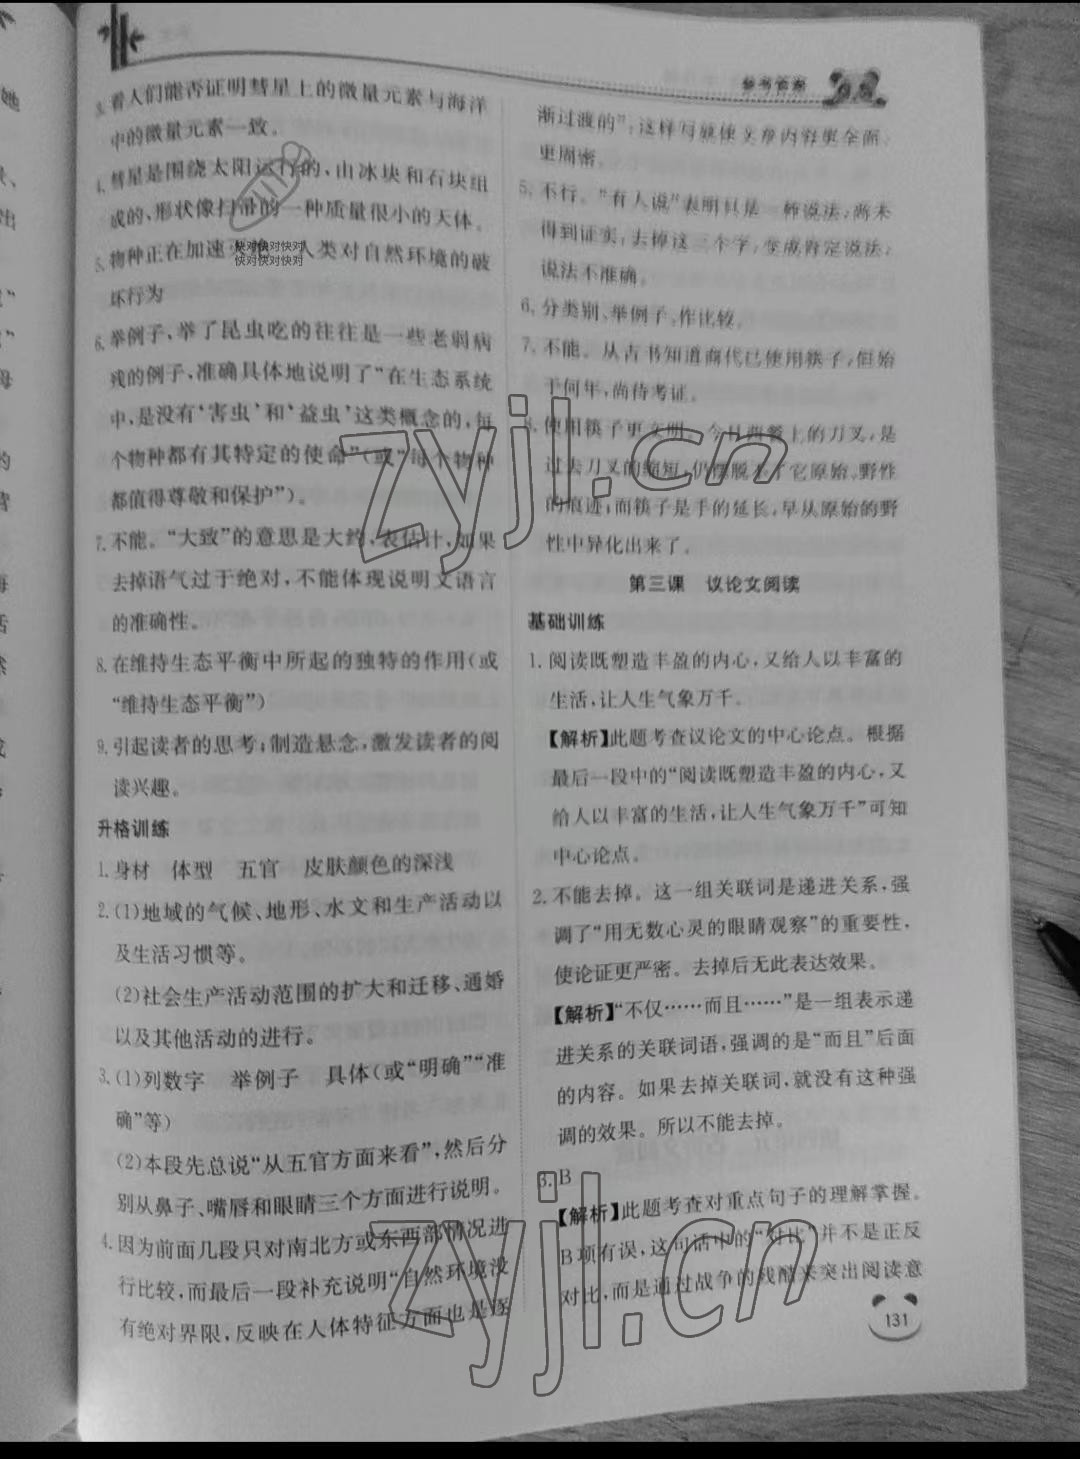 参考答案
3. 看人们能否证明彗星上的微量元素与海洋
中的微量元素一致。
4. 彗星是围绕太阳运行的,由冰块和石块组
成的,形状像扫帚的一种质量很小的天体。
5. 物种正在加速灭绝 人类对自然环境的破
坏行为
6. 举例子,举了昆虫吃的往往是一些老弱病
残的例子,准确具体地说明了“在生态系统
中,是没有‘害虫’和‘益虫’这类概念的,每
个物种都有其特定的使命”(或“每个物种
都值得尊敬和保护”)。
7. 不能。“大致”的意思是大约,表估计,如果
去掉语气过于绝对,不能体现说明文语言
的准确性。
8. 在维持生态平衡中所起的独特的作用(或
“维持生态平衡”)
9. 引起读者的思考;制造悬念,激发读者的阅
读兴趣。
升格训练
1. 身材 体型 五官 皮肤颜色的深浅
2. (1)地域的气候、地形、水文和生产活动以
及生活习惯等。
(2)社会生产活动范围的扩大和迁移、通婚
以及其他活动的进行。
3. (1)列数字 举例子 具体(或“明确”“准
确”等)
(2)本段先总说“从五官方面来看”,然后分
别从鼻子、嘴唇和眼睛三个方面进行说明。
4. 因为前面几段只对南北方或东西部情况进
行比较,而最后一段补充说明“自然环境没
有绝对界限,反映在人体特征方面也是逐
渐过渡的”;这样写就使文章内容更全面、
更周密。
5. 不行。“有人说”表明只是一种说法,尚未
得到证实,去掉这三个字,变成肯定说法,
说法不准确。
6. 分类别、举例子、作比较。
7. 不能。从古书知道商代已使用筷子,但始
于何年,尚待考证。
8. 使用筷子更文明。今日西餐上的刀叉,是
过去刀叉的缩短,仍摆脱不了它原始、野性
的痕迹;而筷子是手的延长,早从原始的野
性中异化出来了。
第三课 议论文阅读
基础训练
1. 阅读既塑造丰盈的内心,又给人以丰富的
生活,让人生气象万千。
【解析】此题考查议论文的中心论点。根据
最后一段中的“阅读既塑造丰盈的内心,又
给人以丰富的生活,让人生气象万千”可知
中心论点。
2. 不能去掉。这一组关联词是递进关系,强
调了“用无数心灵的眼睛观察”的重要性,
使论证更严密。去掉后无此表达效果。
【解析】“不仅……而且……”是一组表示递
进关系的关联词语,强调的是“而且”后面
的内容。如果去掉关联词,就没有这种强
调的效果。所以不能去掉。
3. B
【解析】此题考查对重点句子的理解掌握。
B项有误,这句话中的“对比”并不是正反
对比,而是通过战争的残酷来突出阅读意
131
快对快对快对
快对快对快对
zyjl.cn
zyjl.cn